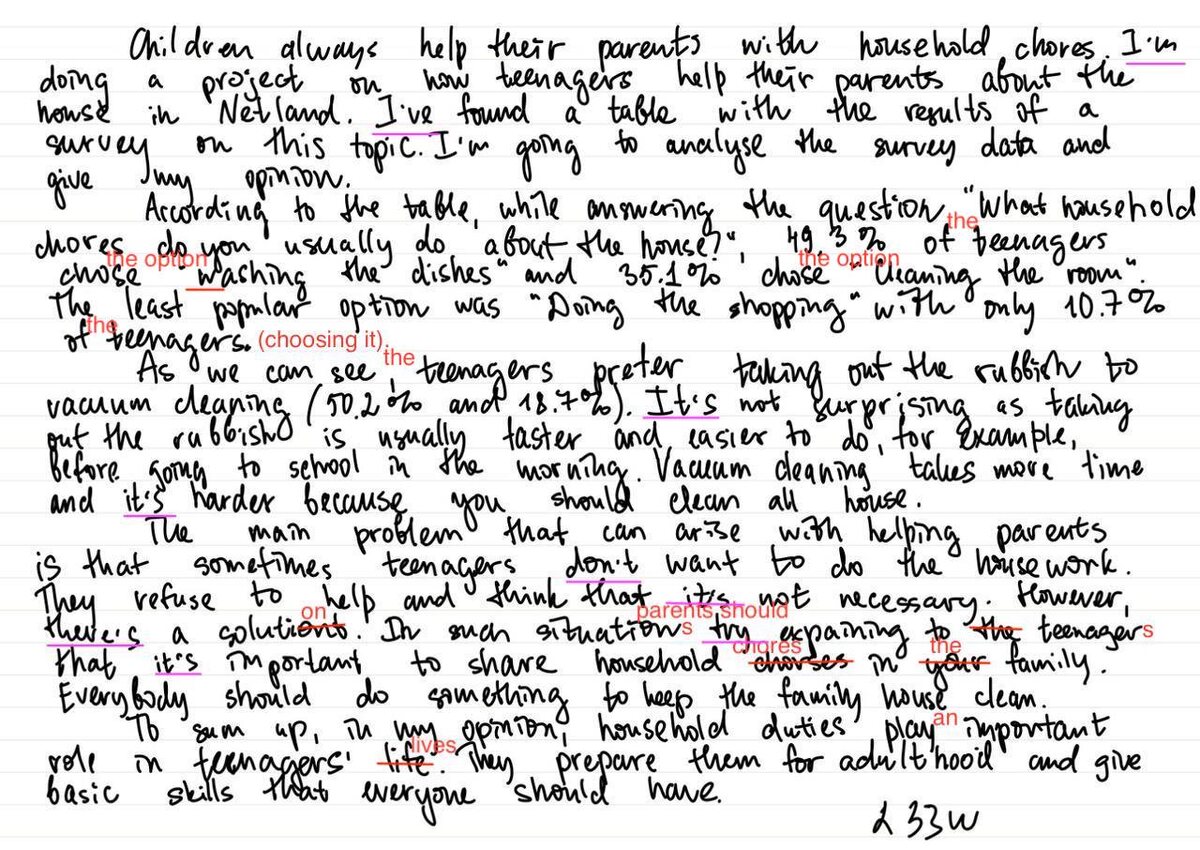 Children always help their parents with household chores. I'm
doing a project on how teenagers help their parents about the
house in Netland. I've found a table with the results of a
survey on this topic. I'm going to analyse the survey data and
give my opinion.
According to the table, while answering the question "What household
the
chores do you usually do about the house?", 49.3% of teenagers
the option the option
chose "Washing the dishes" and 35.1% chose "Cleaning the room".
The least popular option was "Doing the shopping" with only 10.7%
the
of teenagers. (choosing it).
the
As we can see, teenagers prefer taking out the rubbish to
vacuum cleaning (50.2% and 18.7%). It's not surprising as taking
out the rubbish is usually faster and easier to do, for example,
before going to school in the morning. Vacuum cleaning takes more time
and it's harder because you should clean all house.
The main problem that can arise with helping parents
is that sometimes teenagers don't want to do the housework.
They refuse to help and think that it's not necessary. However,
on parents should
there's a solutions. In such situations try expaining to the teenagers
chores the
that it's important to share household chorses in your family.
Everybody should do something to keep the family house clean.
To sum up, in my opinion, household duties play an important
lives
role in teenagers' life. They prepare them for adulthood and give
basic skills that everyone should have.
233w